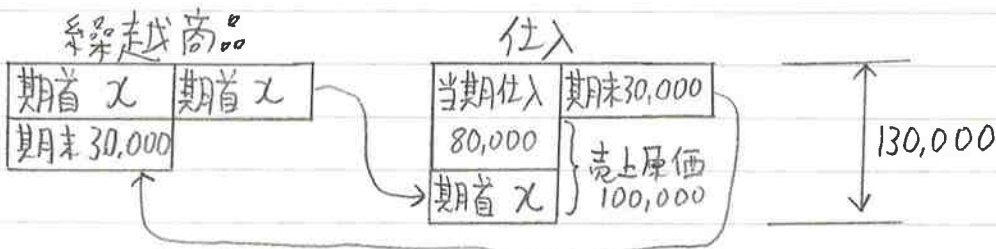 繰越商品
仕入
期首 x 期首 x
期末 30,000
当期仕入 期末30,000
80,000
期首 x
売上原価
100,000
130,000